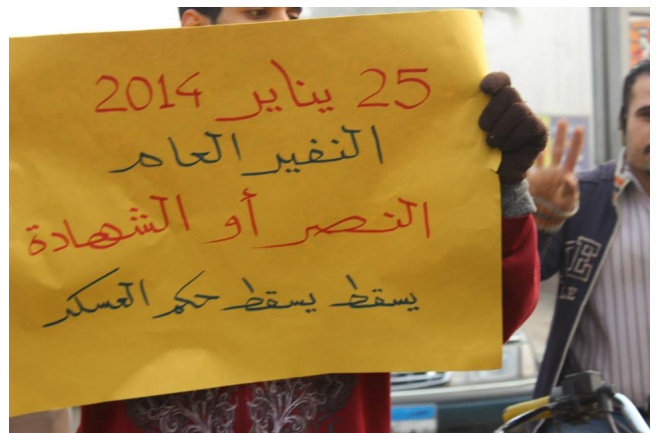 25 يناير 2014
النفير العام
النصر أو الشهادة
يسقط يسقط حكم العسكر